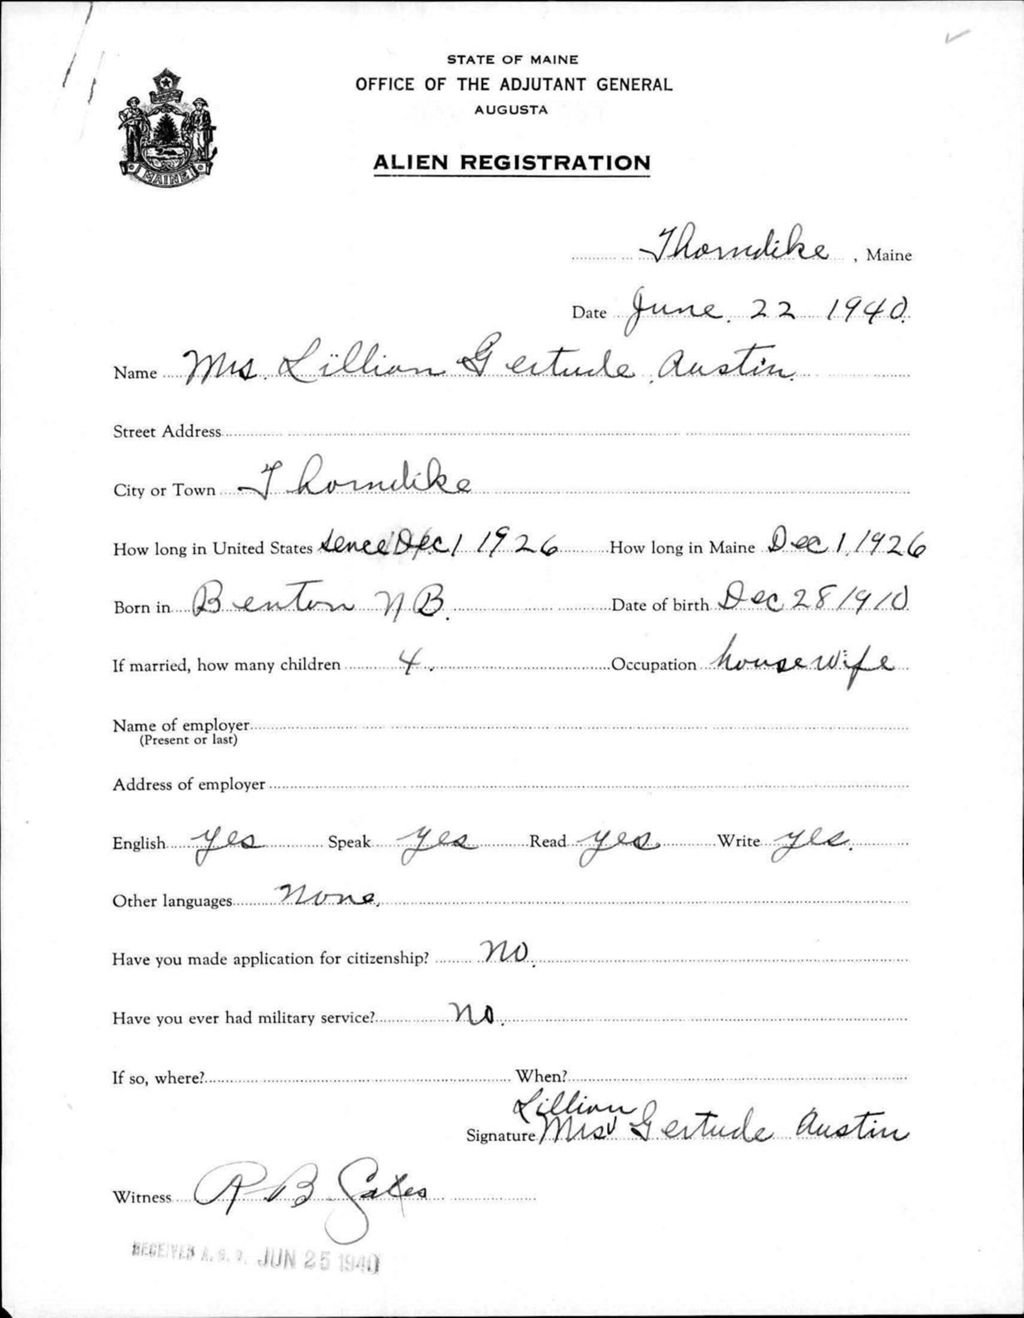 STATE OF MAINE
OFFICE OF THE ADJUTANT GENERAL
AUGUSTA
ALIEN REGISTRATION
MAINE
Thorndike, Maine
Date June 22 1940
Name Mrs. Lillian Gertude Austin
Street Address
City or Town Thorndike
How long in United States sence Dec 1 1926 How long in Maine Dec 1, 1926
Born in Benton NB. Date of birth Dec 28 1910
If married, how many children 4. Occupation housewife
Name of employer
(Present or last)
Address of employer
English yes Speak yes Read yes Write yes.
Other languages None.
Have you made application for citizenship? No.
Have you ever had military service? No.
If so, where? When?
Lillian
Signature Mrs Gertude Austin
Witness R B Gates
RECEIVED A. G. O. JUN 25 1940